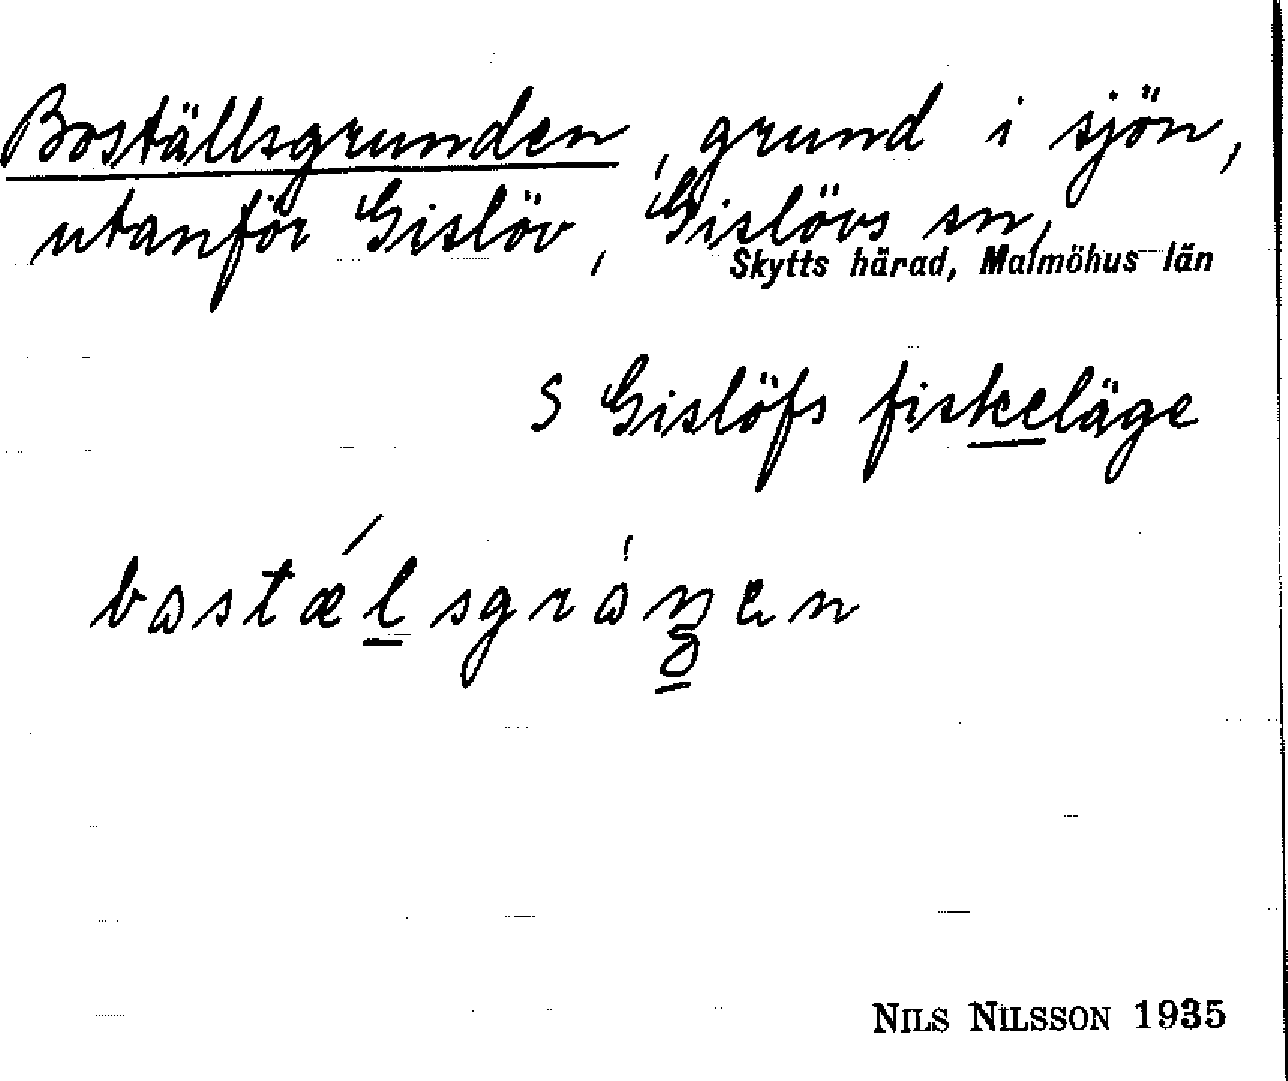 Boställsgrunden, grund i sjön,
utanför Gislöv, Gislövs sn,
Skytts härad, Malmöhus län
S Gislöfs fiskeläge
bostǽlsgrónen
NILS NILSSON 1935